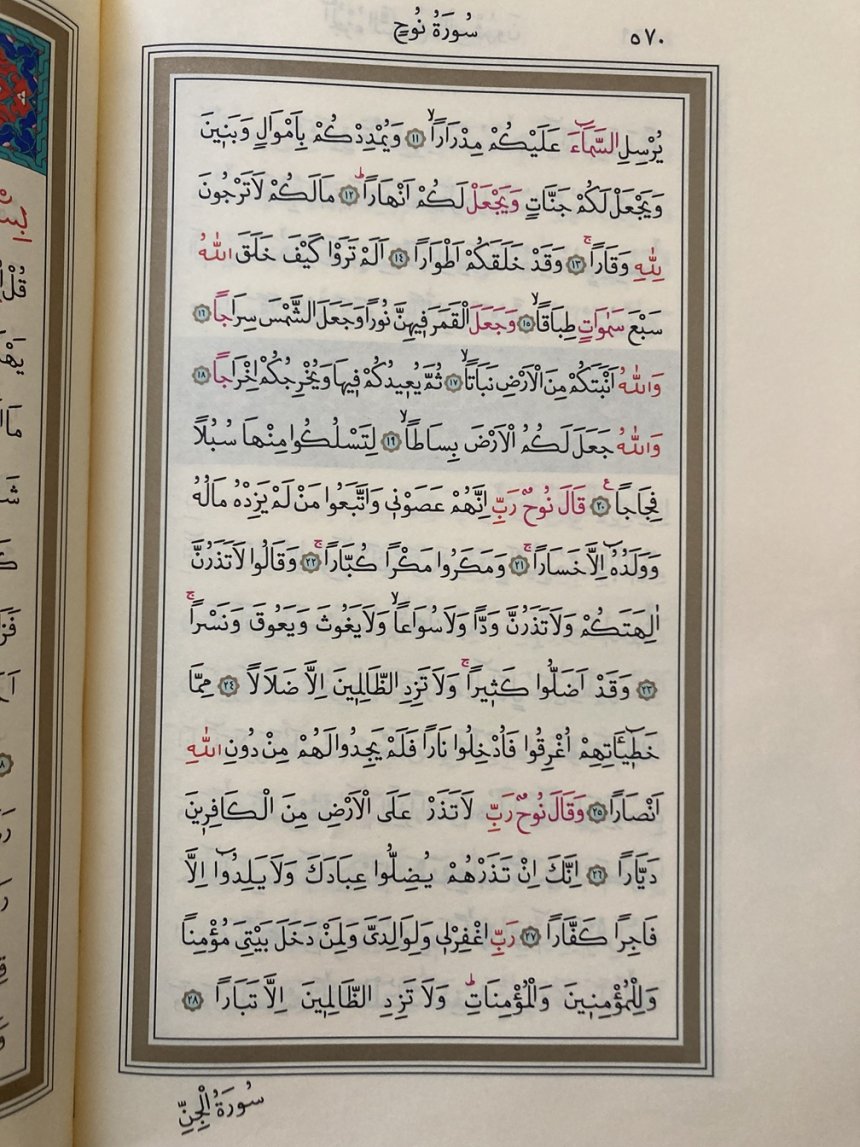 سُورَةُ نُوحٍ
٥٧٠
يُرْسِلِ السَّمَٓاءَ عَلَيْكُمْ مِدْرَاراًۙ ١١ وَيُمْدِدْكُمْ بِاَمْوَالٍ وَبَن۪ينَ
وَيَجْعَلْ لَكُمْ جَنَّاتٍ وَيَجْعَلْ لَكُمْ اَنْهَاراًۜ ١٢ مَالَكُمْ لَا تَرْجُونَ
لِلّٰهِ وَقَاراًۚ ١٣ وَقَدْ خَلَقَكُمْ اَطْوَاراً ١٤ اَلَمْ تَرَوْا كَيْفَ خَلَقَ اللّٰهُ
سَبْعَ سَمٰوَاتٍ طِبَاقاًۙ ١٥ وَجَعَلَ الْقَمَرَ ف۪يهِنَّ نُوراً وَجَعَلَ الشَّمْسَ سِرَاجاً ١٦
وَاللّٰهُ اَنْبَتَكُمْ مِنَ الْاَرْضِ نَبَاتاًۙ ١٧ ثُمَّ يُع۪يدُكُمْ ف۪يهَا وَيُخْرِجُكُمْ اِخْرَاجاً ١٨
وَاللّٰهُ جَعَلَ لَكُمُ الْاَرْضَ بِسَاطاًۙ ١٩ لِتَسْلُكُوا مِنْهَا سُبُلاً
فِجَاجاًࣖ ٢٠ قَالَ نُوحٌ رَبِّ اِنَّهُمْ عَصَوْن۪ي وَاتَّبَعُوا مَنْ لَمْ يَزِدْهُ مَالُهُ
وَوَلَدُهُٓ اِلَّا خَسَاراًۚ ٢١ وَمَكَرُوا مَكْراً كُبَّاراًۚ ٢٢ وَقَالُوا لَا تَذَرُنَّ
اٰلِهَتَكُمْ وَلَا تَذَرُنَّ وَداًّ وَلَا سُوَاعاًۙ وَلَا يَغُوثَ وَيَعُوقَ وَنَسْراًۚ
٢٣ وَقَدْ اَضَلُّوا كَث۪يراًۚ وَلَا تَزِدِ الظَّالِم۪ينَ اِلَّا ضَلَالاً ٢٤ مِمَّا
خَط۪ٓيـَٔاتِهِمْ اُغْرِقُوا فَاُدْخِلُوا نَاراً فَلَمْ يَجِدُوا لَهُمْ مِنْ دُونِ اللّٰهِ
اَنْصَاراً ٢٥ وَقَالَ نُوحٌ رَبِّ لَا تَذَرْ عَلَى الْاَرْضِ مِنَ الْكَافِر۪ينَ
دَيَّاراً ٢٦ اِنَّكَ اِنْ تَذَرْهُمْ يُضِلُّوا عِبَادَكَ وَلَا يَلِدُٓوا اِلَّا
فَاجِراً كَفَّاراً ٢٧ رَبِّ اغْفِرْل۪ي وَلِوَالِدَيَّ وَلِمَنْ دَخَلَ بَيْتِيَ مُؤْمِناً
وَلِلْمُؤْمِن۪ينَ وَالْمُؤْمِنَاتِۜ وَلَا تَزِدِ الظَّالِم۪ينَ اِلَّا تَبَاراً ٢٨
سُورَةُ الْجِنِّ